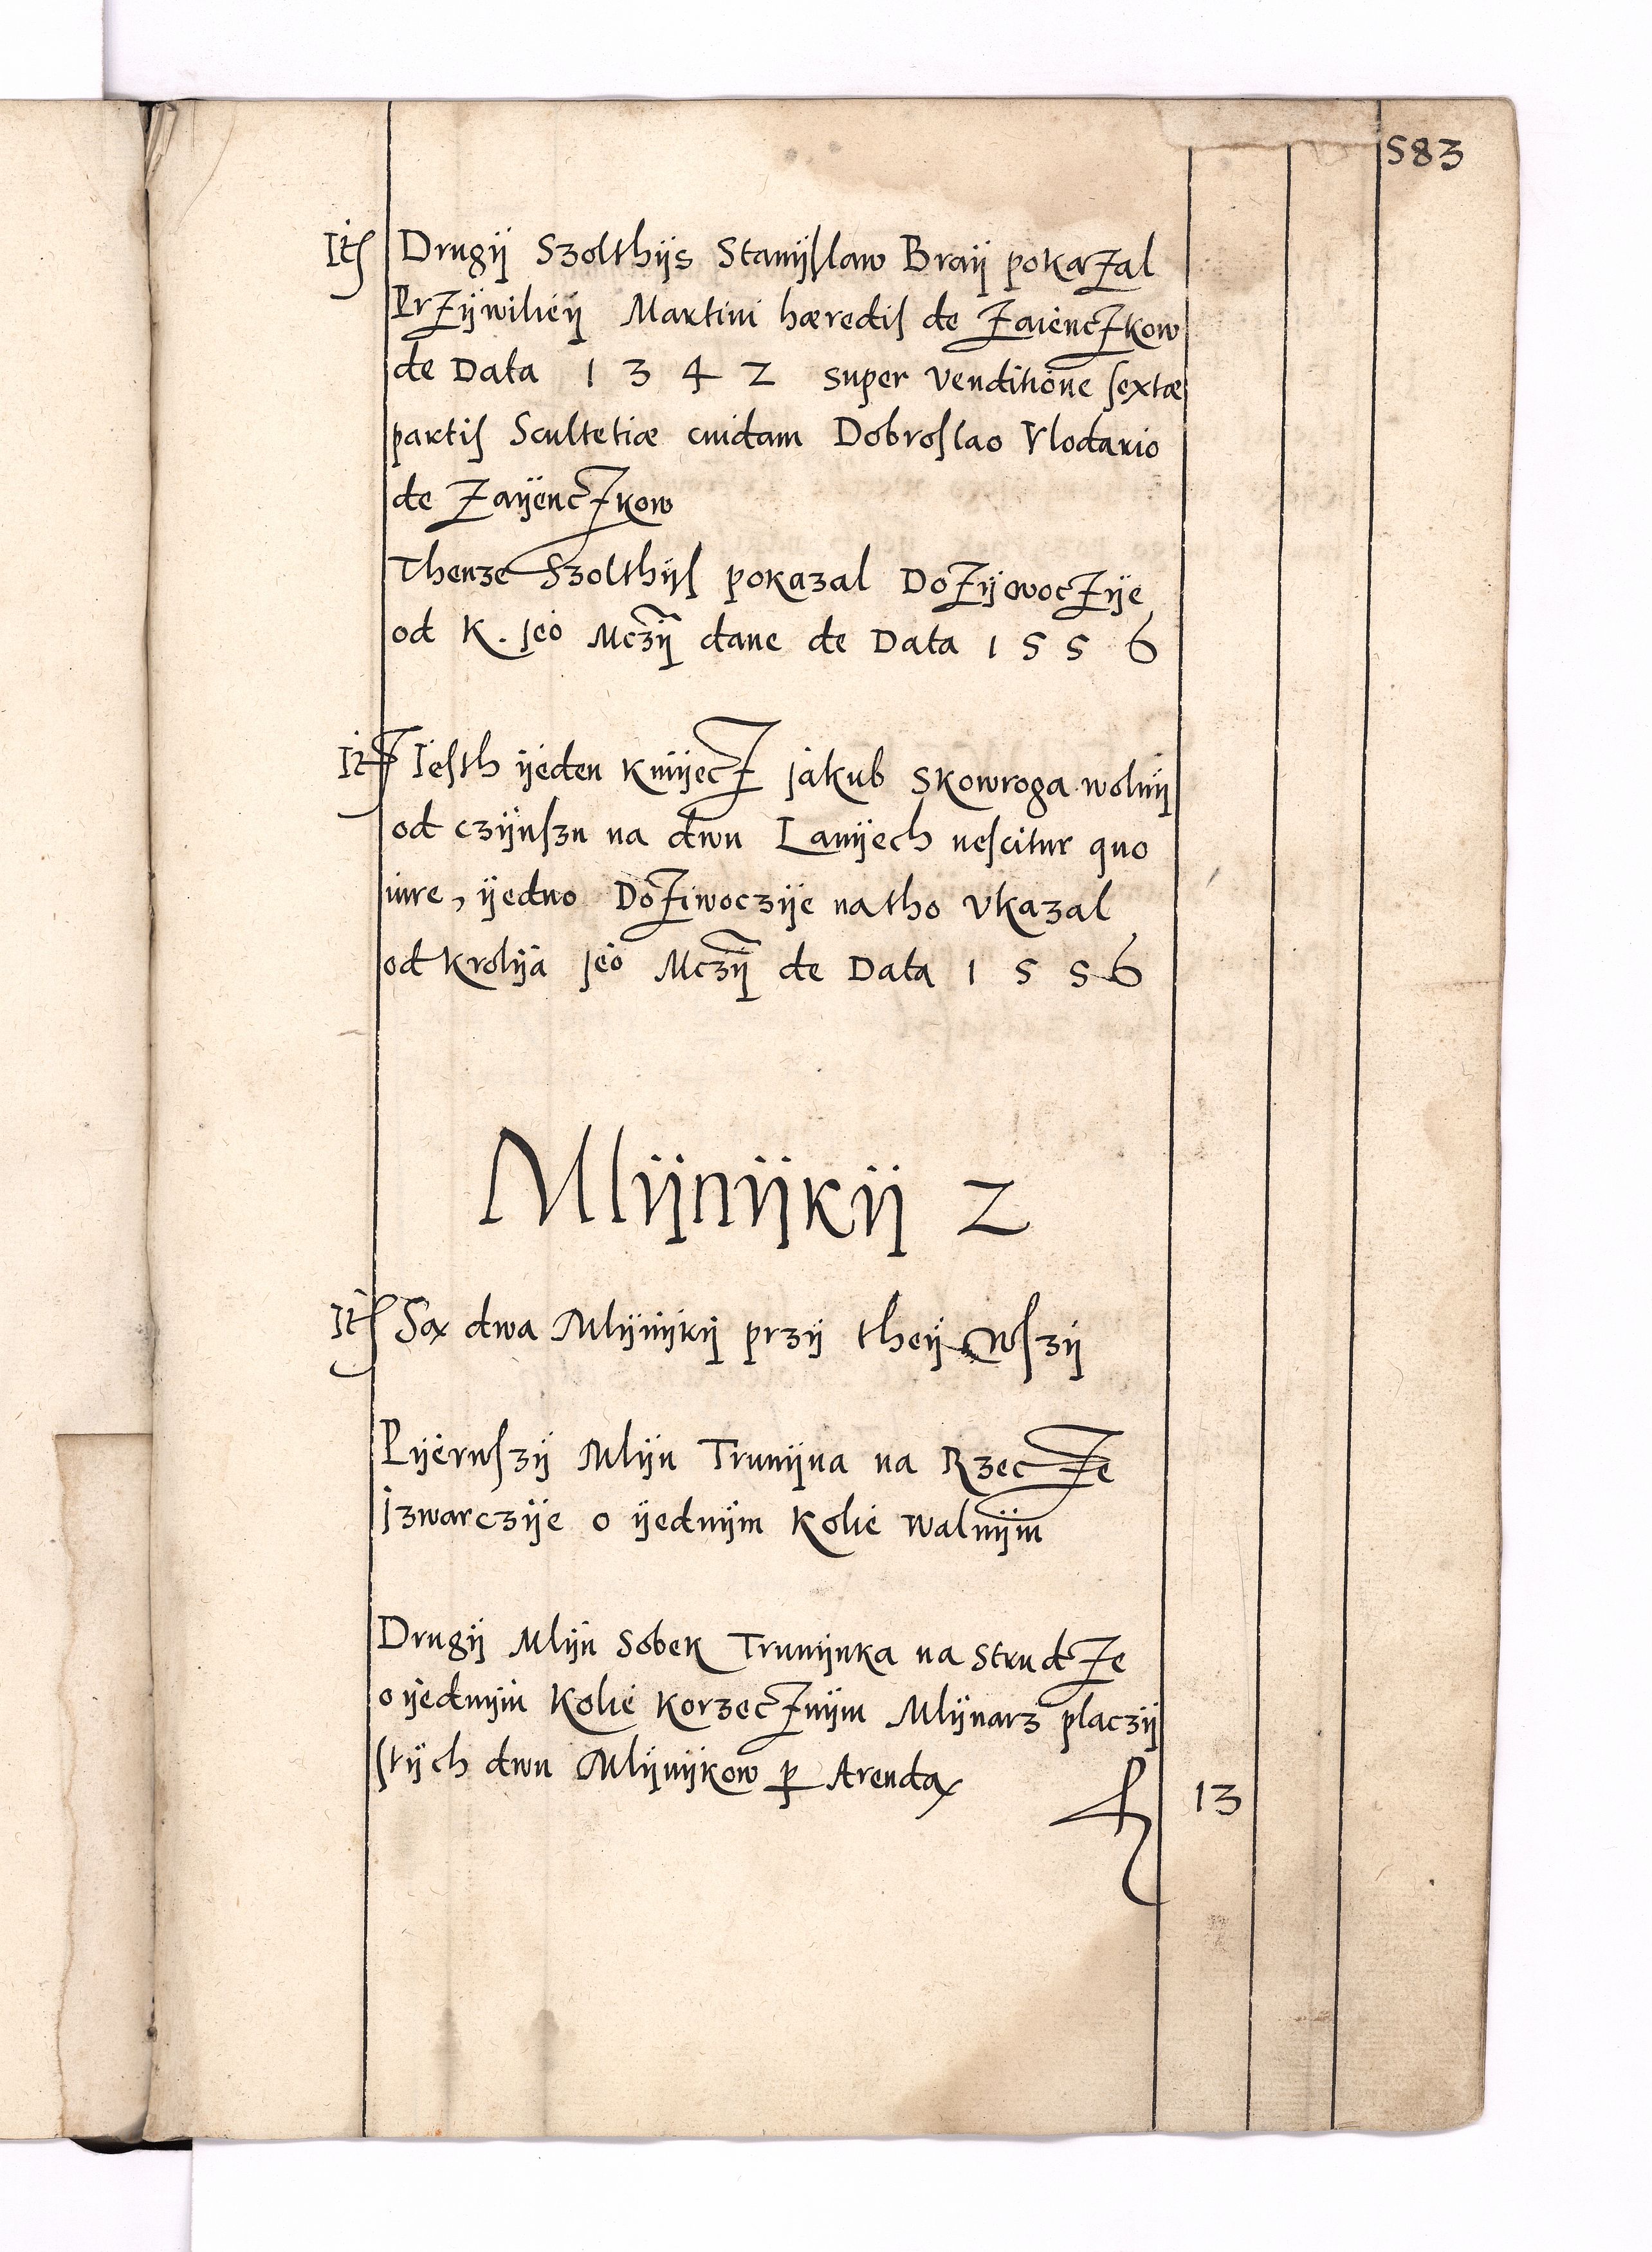 583
Itꝭ Drugij Szolthijs Stanijſlaw Braij pokaZal
PrZijwilieij Martini hærediſ de ZaiencZkow
de Data 1 3 4 2 super Venditione ſextæ
partiſ Scultetiæ cuidam Dobroſlao Vlodario
de ZaijencZkow
Thenze Szolthijſ pokazal DoZijwocZije
od K. Jeo Mczij dane de Data 1 5 5 6
Itꝭ Ieſth ijeden kmijecZ jakub Skowroga wolnij
od czijnſzu na dwu Lanijech neſcitur quo
iure, ijedno DoZiwoczije natho Vkazal
od Krolija Jeo Mczij de Data 1 5 5 6
Mlijnijkij 2
Itꝭ Są dwa Mlijnijkij przij theij wſzij
Pijerwſzij Mlijn Trunijna na RzecZe
jzwarczije o ijednijm Kolie walnijm
Drugij Mlijn Sobek Trunijnka na StrudZe
o ijednijm Kolie KorzecZnijm Mlijnarz placzij
ſtijch dwu Mlijnijkow ꝑ Arendą
fl 13